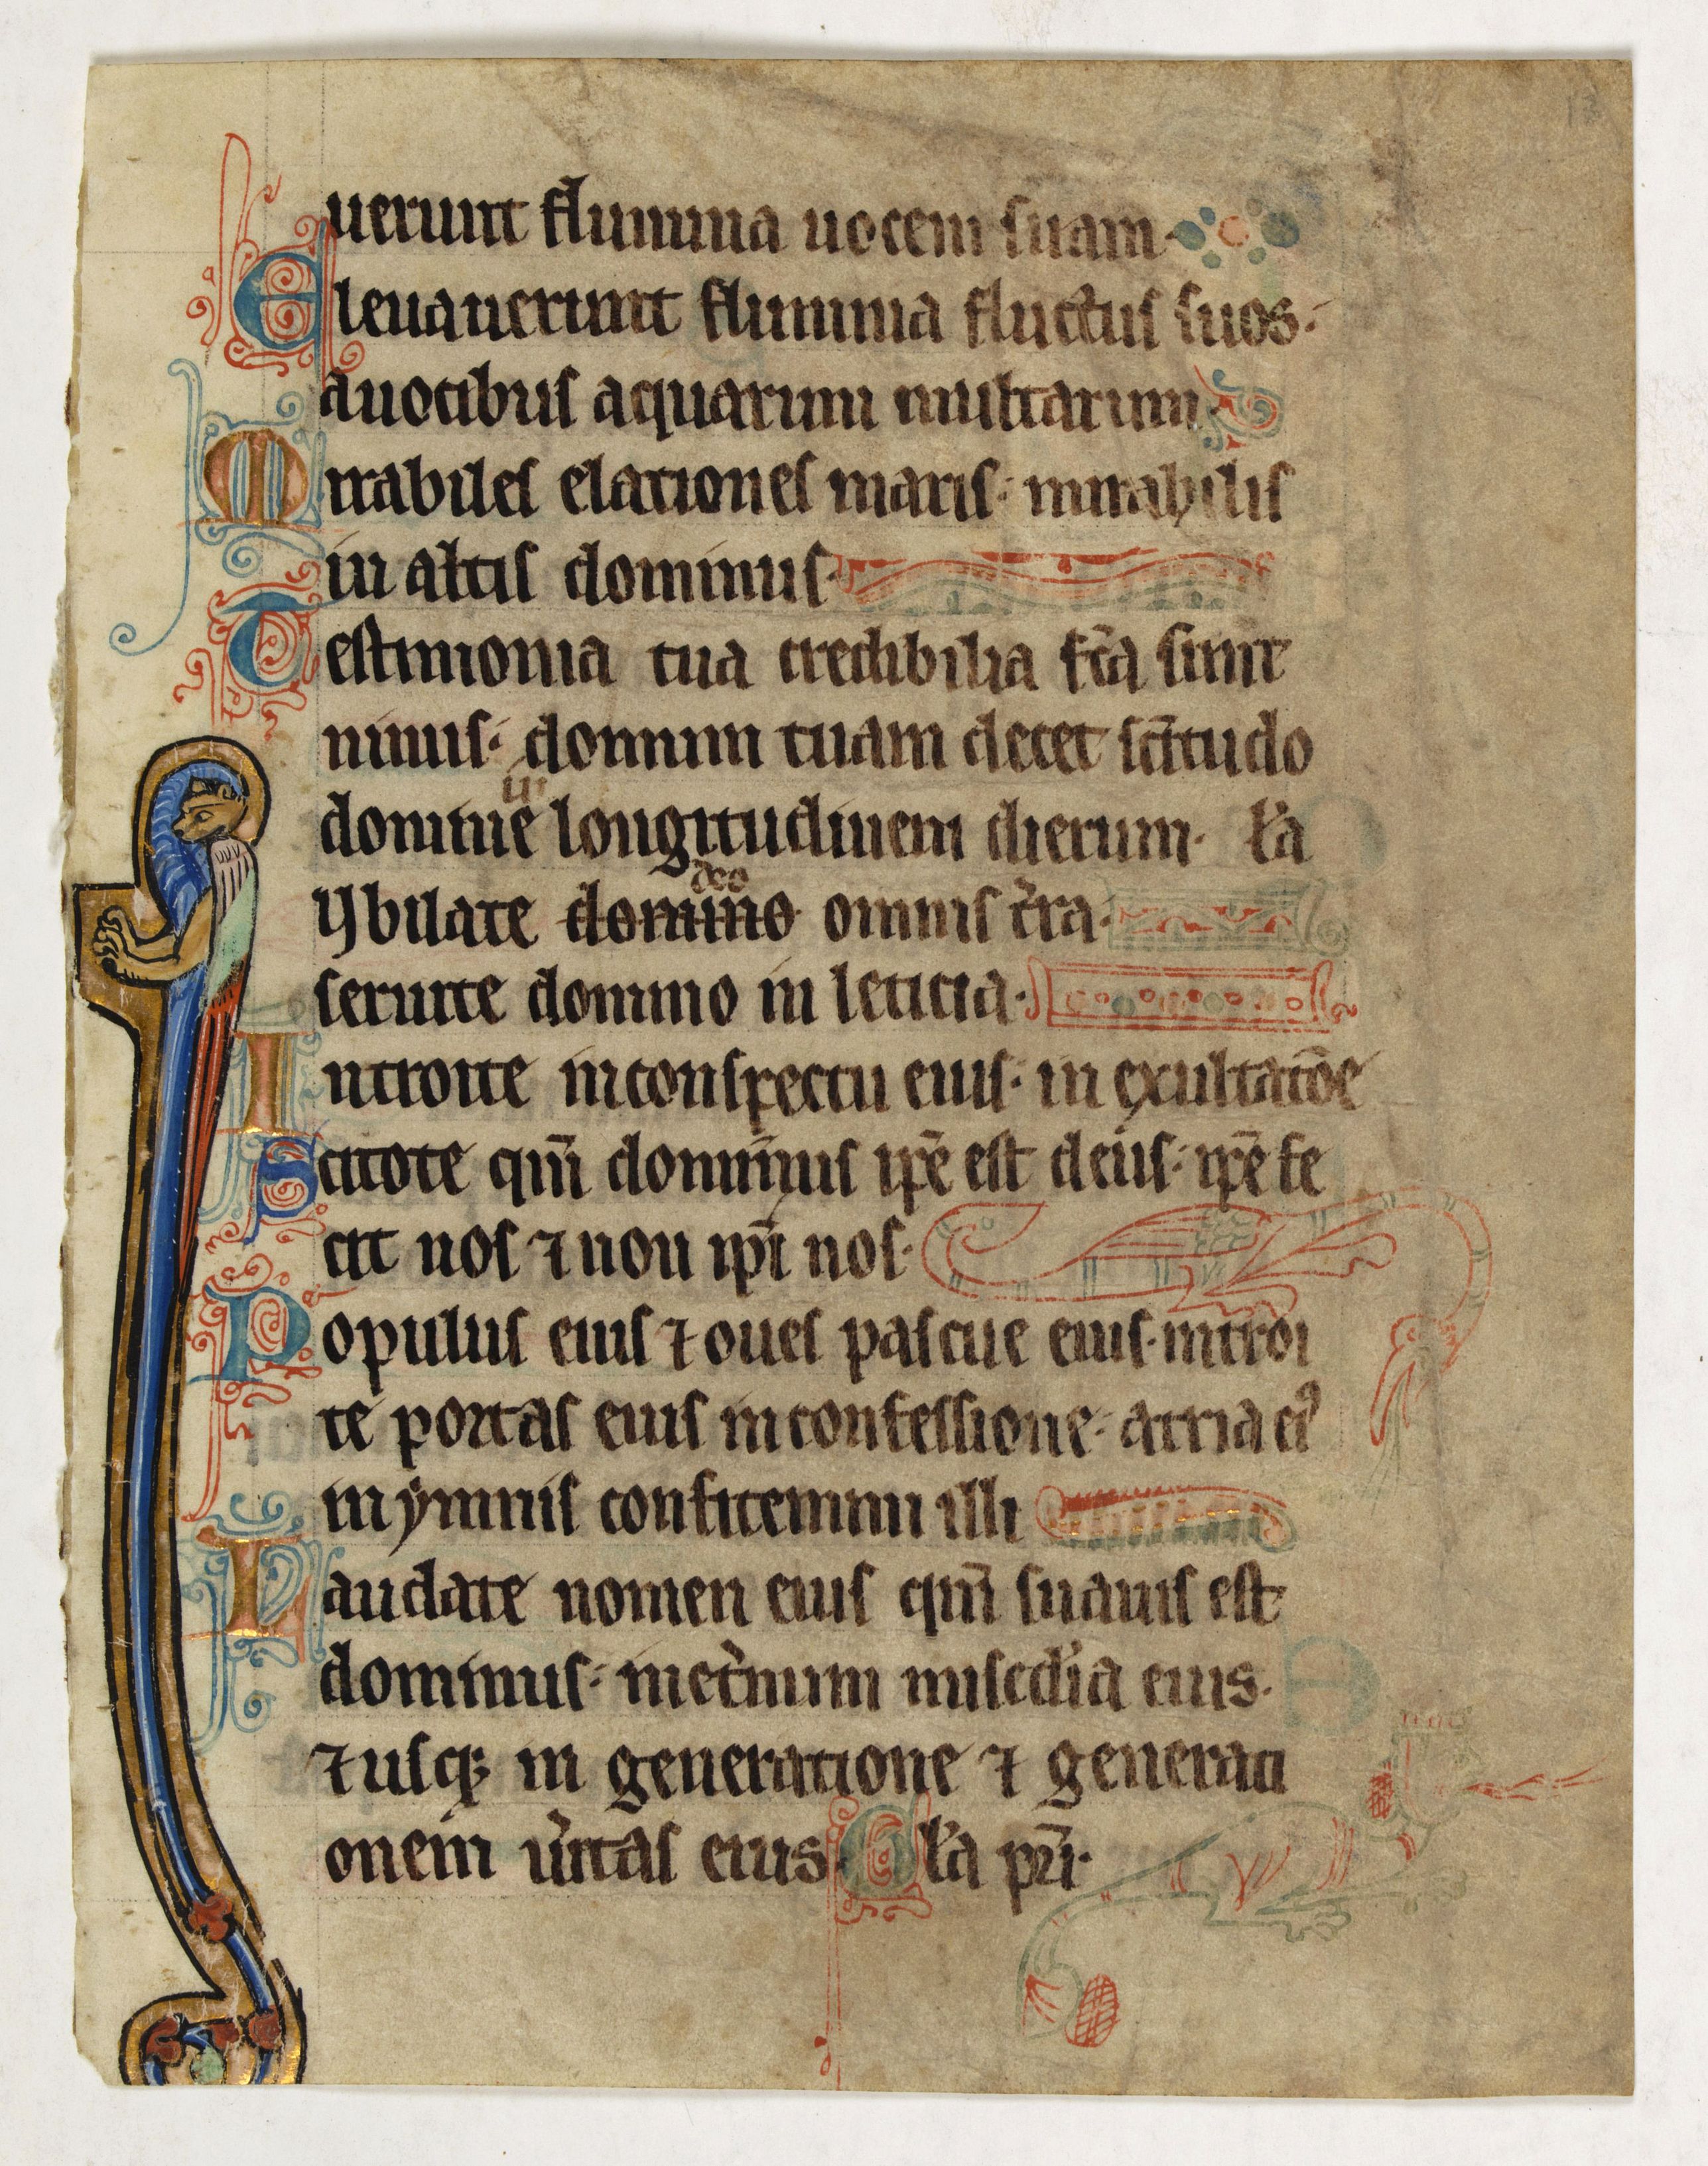 13
uerunt flumina uocem suam·
Eleuauerunt flumina fluctus suos·
auocibus aquarum multarum·
Mirabiles elationes maris· mirabilis
in altis dominus·
Testimonia tua credibilia fc̄a sunt
nimis· domum tuam decet sc̄itudo
in
domine longitudinem dierum· l̄a
deo
Iubilate domino omnis t̄ra·
seruite domino in leticia·
Introite inconspectu eius· in exultatōe
Scitote qm̄ dominus ip̄e est deus· ip̄e fe
cit nos ⁊ non ip̄i nos·
Populus eius ⁊ oues pascue eius· introi
te portas eius inconfessione· atria ei⁹
inymnis confitemini illi
Laudate nomen eius qm̄ suauis est
dominus· inet̄num misc̄dia eius·
⁊ usqꝫ in generatione ⁊ generati
onem ūitas eius· Gl̄a pr̄i·